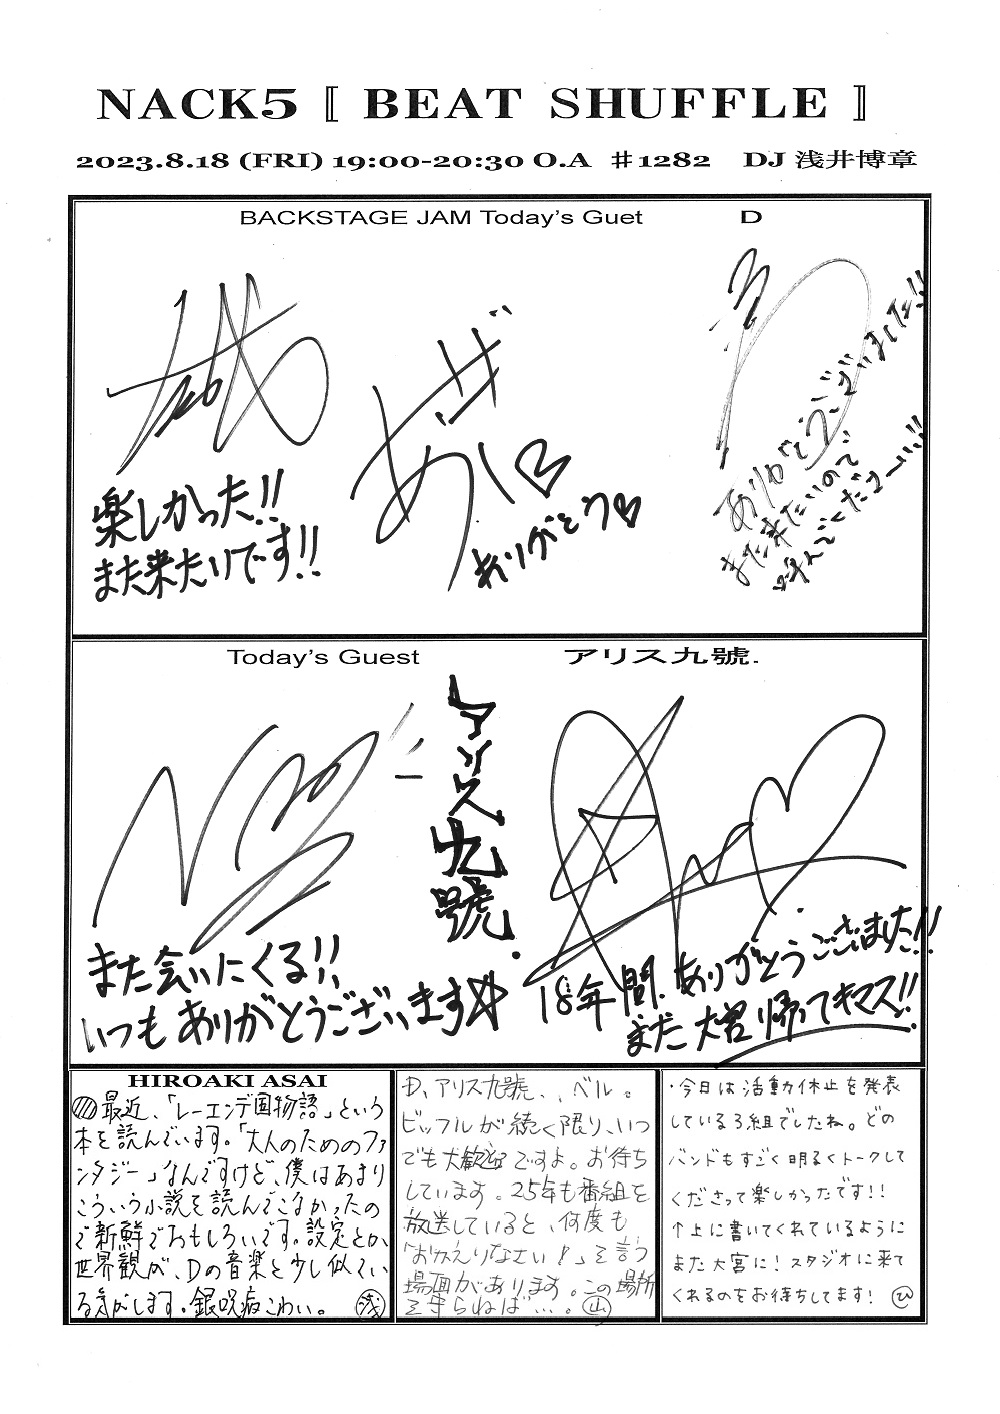 NACK5 〚 BEAT SHUFFLE 〛
2023.8.18 (FRI) 19:00-20:30 O.A ♯1282 DJ 浅井博章
BACKSTAGE JAM Today's Guet D
楽しかった!!
また来たいです!!
ありがとう♡
ありがとうございました!!
また来たいので
呼んでくださーい!!
Today's Guest アリス九號.
アリス九號.
また会いにくる!!
いつもありがとうございます☆
18年間.ありがとうございました!!
まだ大宮帰ってキマス!!
HIROAKI ASAI
最近、「レーエンデ国物語」という
本を読んでいます。「大人のためのファ
ンタジー」なんですけど、僕はあまり
こういう小説を読んでこなかったの
で新鮮でおもしろいです。設定とか
世界観が、Dの音楽と少し似てい
る気がします。銀呪病こわい。 浅
D、アリス九號.、ベル。
ビッフルが続く限り、いつ
でも大歓迎ですよ。お待ち
しています。25年も番組を
放送していると、何度も
「おかえりなさい!」を言う
場面があります。この場所
を守らねば…。 山
・今日は活動休止を発表
している3組でしたね。どの
バンドもすごく明るくトークして
くださって楽しかったです!!
↑上に書いてくれているように
また大宮に!スタジオに来て
くれるのをお待ちしてます! ひ